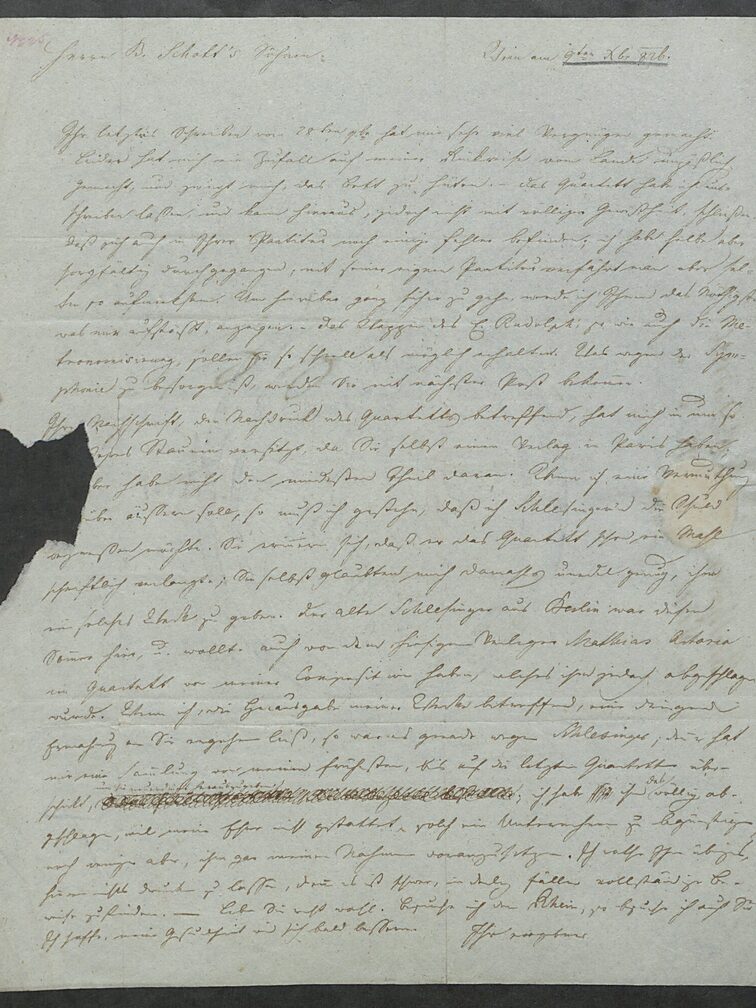 Herrn B. Schott's Söhne.
Wien am 9ten Xbr 826.
Ihr letztes Schreiben vom 28ten 9br hat mir sehr viel Vergnügen gemacht.
Leider hat mich ein Zufall auf meiner Rückreise vom Lande unpäßlich
gemacht, und zwingt mich, das Bett zu hüten. – Das Quartett hab ich
schreiben lassen, und kann hieraus, jedoch nicht mit völliger Gewißheit, schließen
daß sich auch in Ihrer Partitur noch einige Fehler befinden. ich habe selbe aber
sorgfältig durchgegangen, mit seiner eigenen Partitur verfährt man aber sel-
ten so aufmerksam. Um hierüber ganz sicher zu gehen, werde ich Ihnen das
was mir aufstößt, anzeigen. – Das Wappen des E. Rudolph, so wie auch die Me-
tronomisirung, sollen Sie so schnell als möglich erhalten. Was wegen der Sym-
phonie zu besorgen ist, werden Sie mit nächster Post bekommen.
Ihre Nachschrift, den Nachdruck des Quartetts betreffend, hat mich in um so
Staunen versetzt, da Sie selbst einen Verlag in Paris haben.
habe nicht den mindesten Theil daran. Wenn ich eine Vermuthung
äussern soll, so muß ich gestehen, daß ich Schlesinger'n die Schuld
möchte. Sie erinnern sich, daß er das Quartett schon ein Mahl
schriftlich verlangte; Sie selbst glaubten mich damahls unedel genug, ihm
ein solches Werk zu geben. Der alte Schlesinger aus Berlin war diesen
Sommer hier, u. wollte auch von dem hiesigen Verleger Mathias Artaria
ein Quartett von meiner Composition haben, welches ihm jedoch abgeschlagen
wurde. Wenn ich, die Herausgabe meiner Werke betreffend, eine dringende
Ermahnung an Sie ergehen ließ, so war es gerade wegen Schlesinger; denn er hat
mir eine Sammlung von meinen frühesten, bis auf die letzten Quartetten über-
schickt, ich hab es ihm aber völlig ab-
geschlagen, weil meine Ehre nicht gestattet, solch ein Unternehmen zu begünstigen
noch weniger aber, ihm gar meinen Nahmen voranzusetzen. Ich rathe Ihnen übrigens,
hierüber nichts drucken zu lassen, denn es ist schwer, in derley Fällen vollständige Be-
weise zu finden. — Leben Sie recht wohl. Besuche ich den Rhein, so besuche ich auch Sie
Ich hoffe, meine Gesundheit wird sich bald bessern. Ihr ergebener